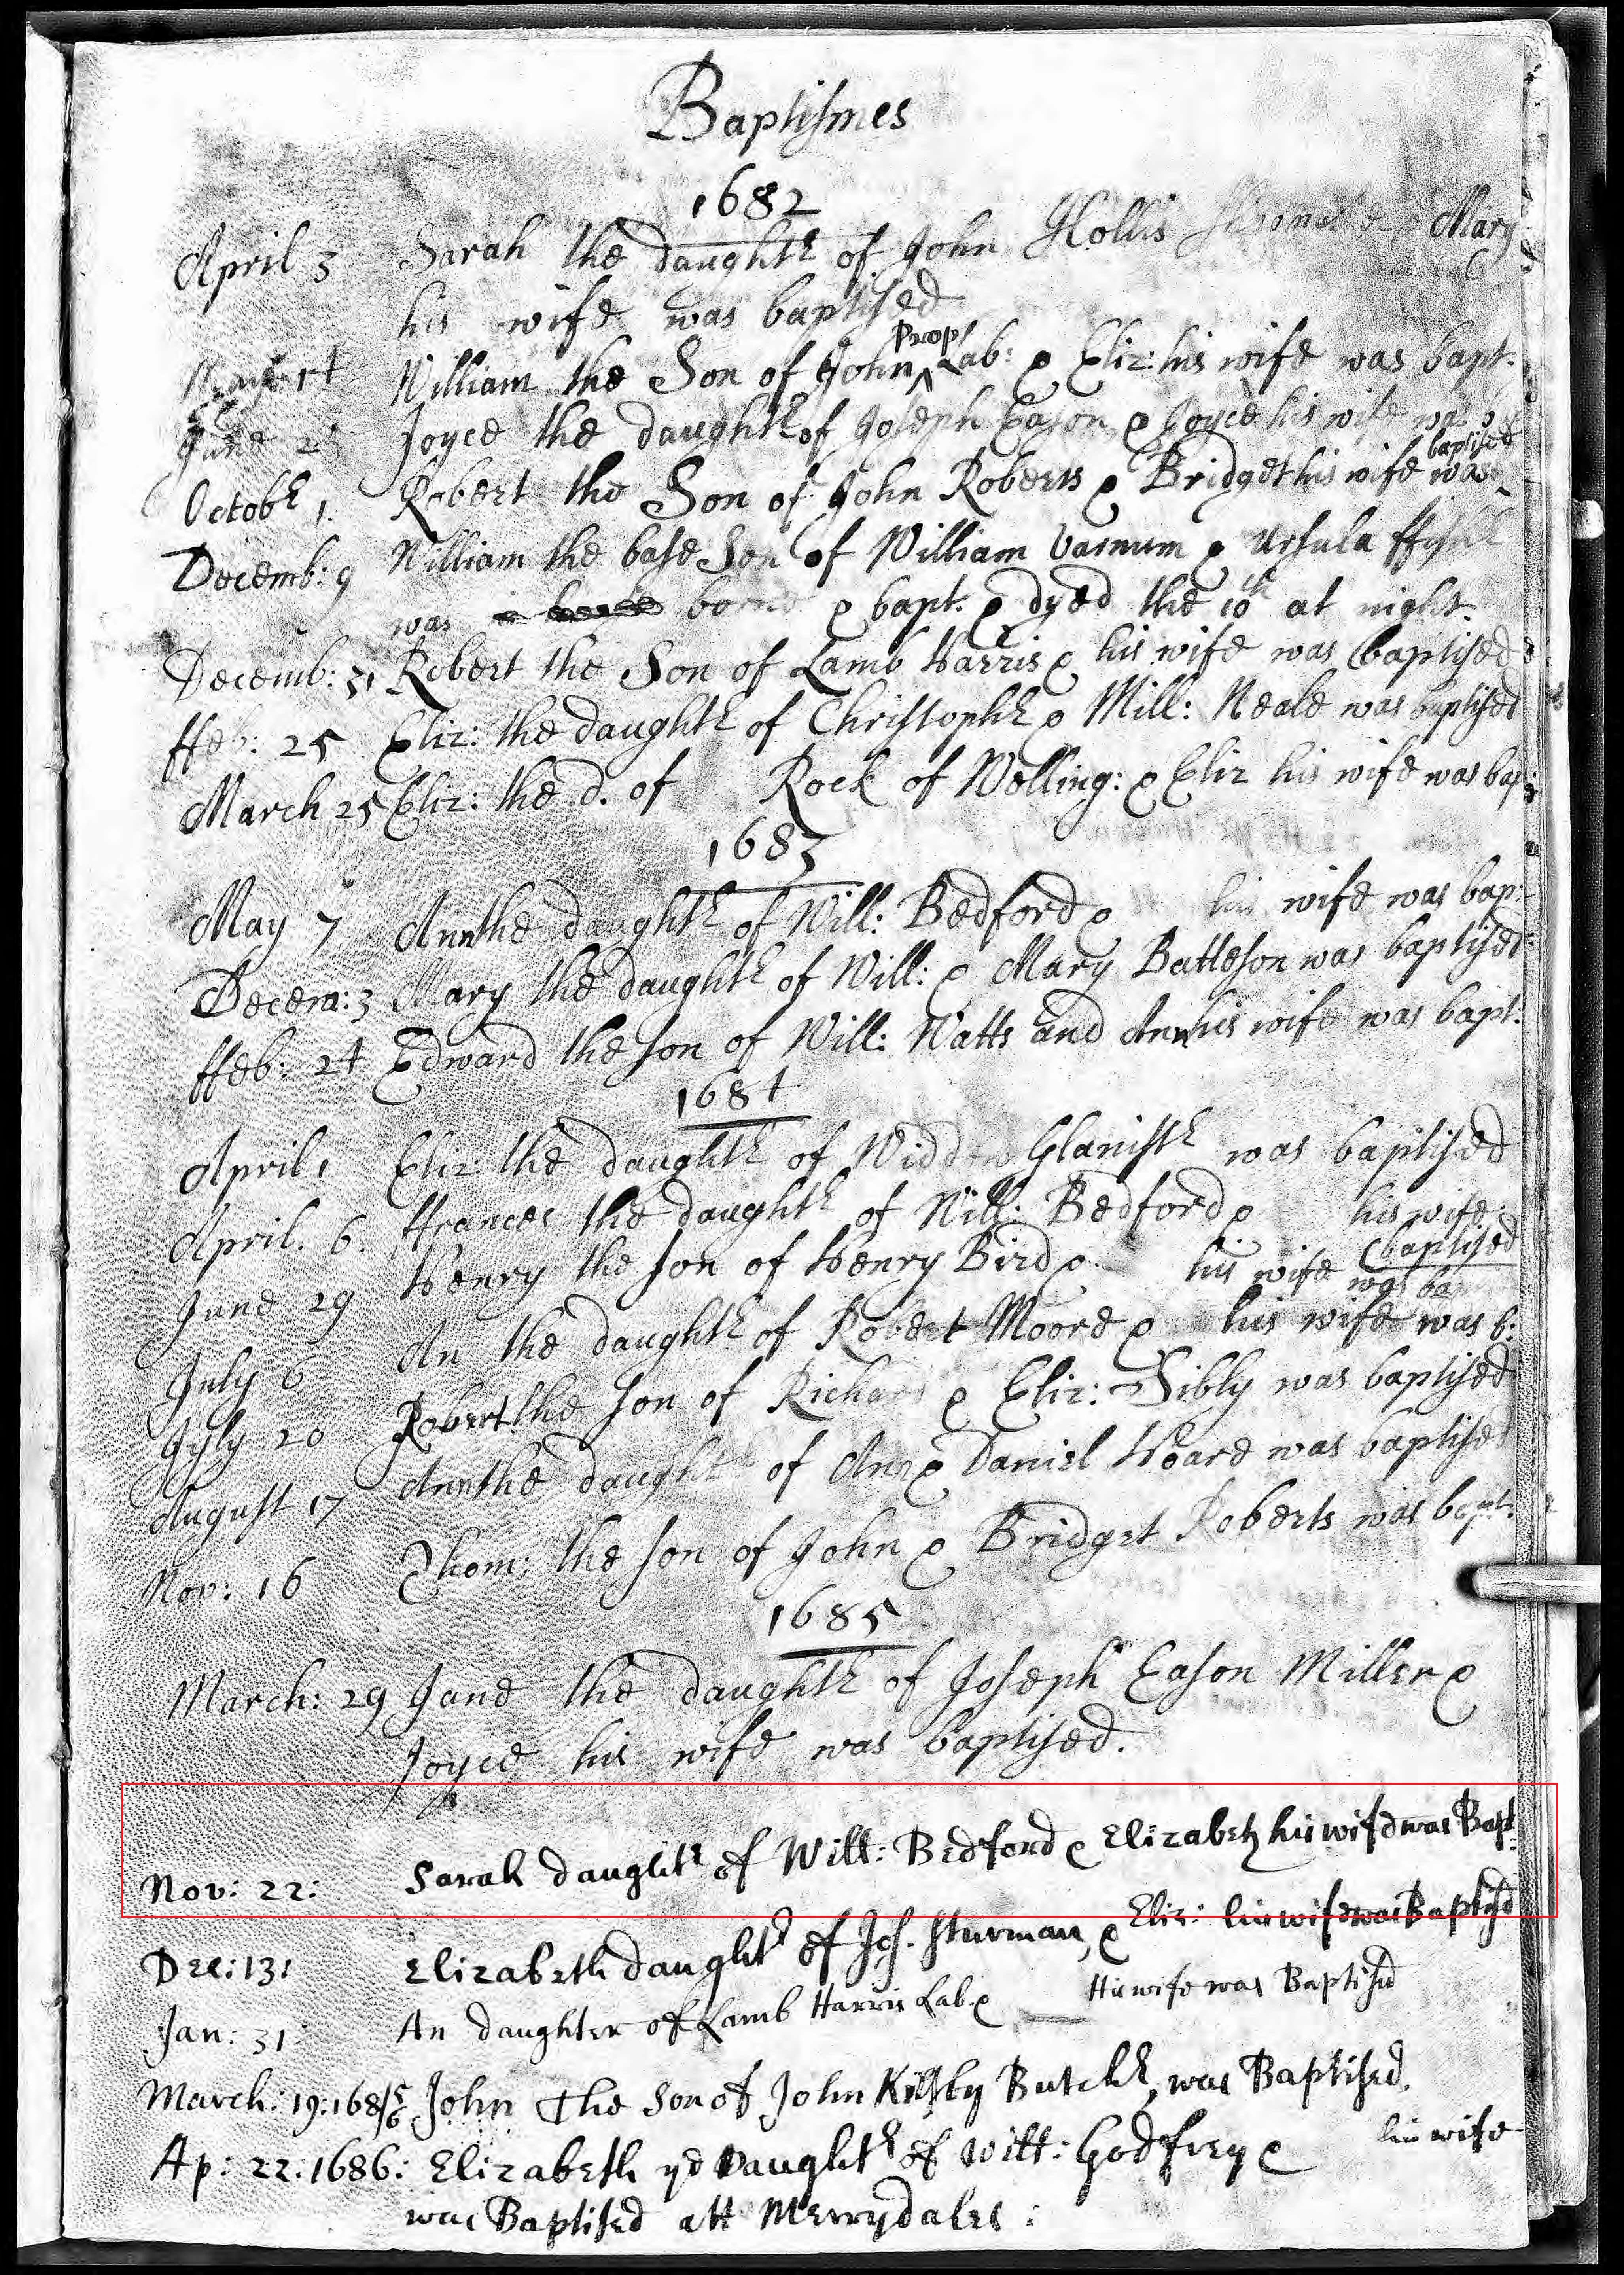 Baptismes
1682
April 3 Sarah the daughtr of John Hollis Mary
his wife was baptised
Prop
William the Son of John Lab: & Eliz: his wife was bapt.
June Joyce the daughtr of Joseph Eason & Joyce his wife was
baptised
Octobr 1. Robert the Son of John Roberts & Bridget his wife was
Decemb: 9 William the base Son of William Varnum & Ursula
was borne & bapt. & dyed the 10th at night.
Decemb: 31 Robert the Son of Lamb Harris & his wife was baptised
ffeb: 25 Eliz: the daughtr of Christophr & Mill: Neale was baptised
March 25 Eliz: the d. of Rock of Welling: & Eliz his wife was bap:
1683
May 7 Ann the daughtr of Will: Bedford & his wife was bap:
Decem: 3 Mary the daughtr of Will: & Mary Battleson was baptised
ffeb: 24 Edward the son of Will: Watts and Ann his wife was bapt.
1684
April 1 Eliz: the daughtr of Widdow Glanistr was baptised
April. 6. ffrances the daughtr of Will: Bedford & his wife:
baptised
June 29 Henry the son of Henry Bird & his wife was ba
July 6 An the daughtr of Robert Moore & his wife was b:
July 20 Robert the son of Richard & Eliz: Sibly was baptised
August 17 Ann the daughtr of Ann & Daniel Hoare was baptised
Nov: 16 Thom: the son of John & Bridget Roberts was bapt:
1685
March: 29 Jane the daughtr of Joseph Eason Miller &
Joyce his wife was baptised.
Nov: 22: Sarah daughtr of Will: Bedford & Elizabeth his wife was Bapt:
Dec: 13: Elizabeth daughtr of Jos. Sturman, & Eliz: his wife was Baptisd
Jan: 31 An daughter of Lamb Harris Lab. & His wife was Baptisd
March: 19: 1685/6 John The Son of John Kilsby Butchr, was Baptised.
Ap: 22: 1686: Elizabeth ye Daughtr of Will: Godfrey & his wife
was Baptised att Merrydales: